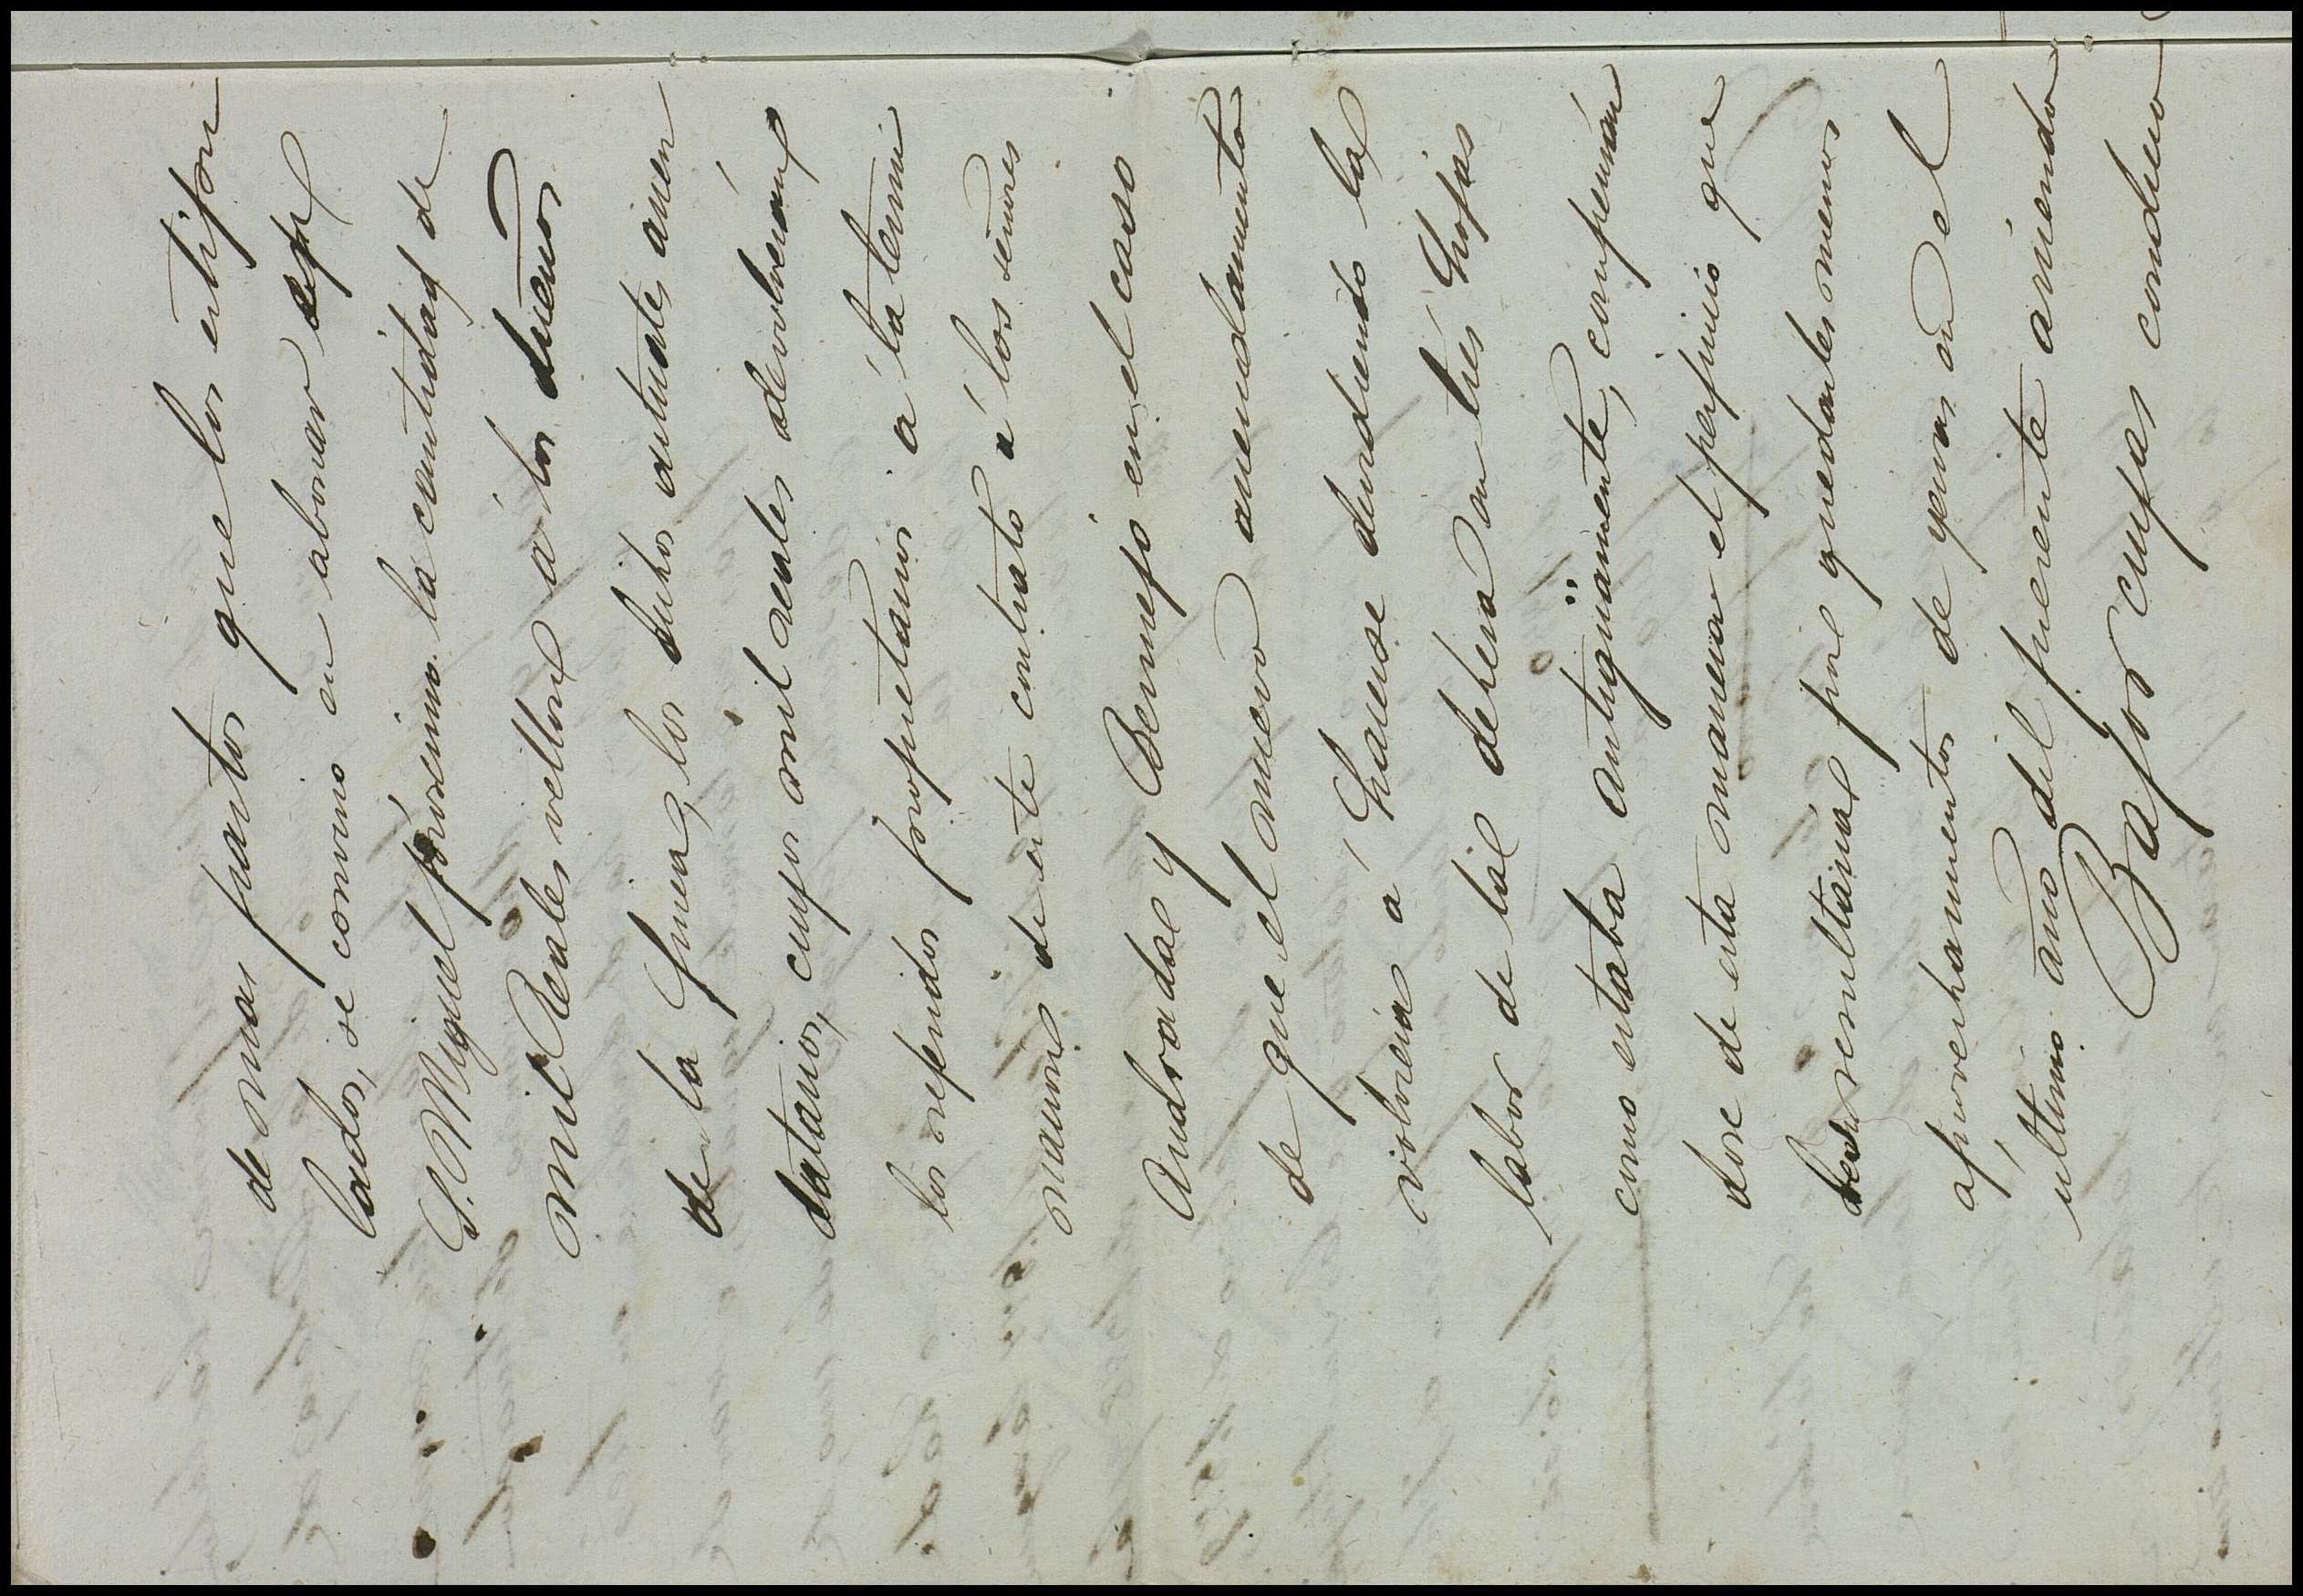 de mas partos que los estipon
lados, se convino en abonar el
S. Miguel próximo la cantidad de
mil Reales vellon á los dueños
de la finca, los dichos actuales arren
datarios, cuyos mil reales devolveran
los referidos propietarios á la termi
nacion de este contrato á los señores
Andradas y Bermejo en el caso
de que el nuevo arrendamiento
volviera á hacerse dividiendo la
labor de tal dehesa en tres hojas
como estaba antiguamente, compensan
dose de esta manera el perjuicio que
les resultaria por quedarles menos
aprovechamientos de yervas en el
ultimo año del presente arriendo
Bajos cuyas condicio